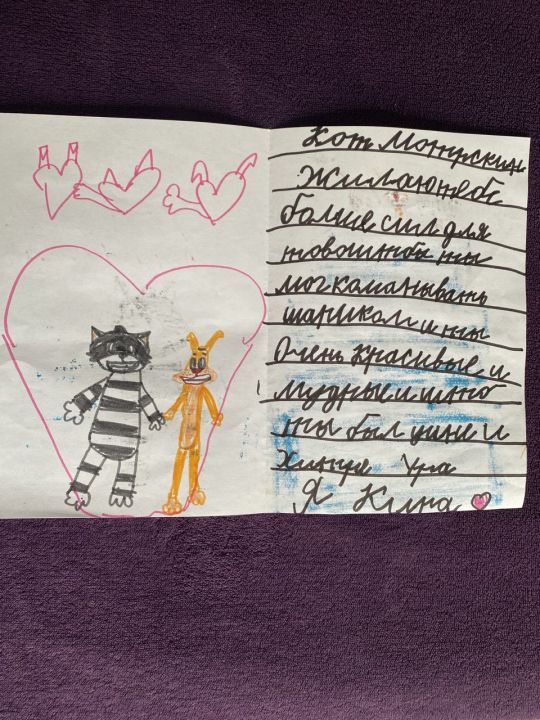 Кот Мотрскин
Жилаютебе
болше сил для
товоштобы ты
могкоманывать
шариком и ты
Очень красивые и
мудрые и штоб
ты был умне и
Хитре Ура
Я